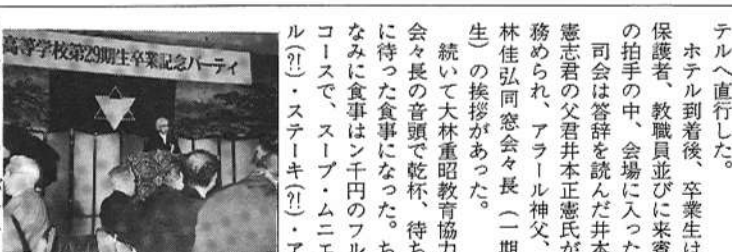 テルへ直行した。
ホテル到着後、卒業生は
保護者、教職員並びに来賓
の拍手の中、会場に入った
司会は答辞を読んだ井本
憲志君の父君井本正憲氏が
務められ、アラール神父、
林佳弘同窓会々長（一期
生）の挨拶があった。
続いて大林重昭教育協力
会々長の音頭で乾杯、待ち
に待った食事になった。ち
なみに食事はン千円のフル
コースで、スープ・ムニエ
ル(?!)・ステーキ(?!)・ア
高等学校第29期生卒業記念パーティ